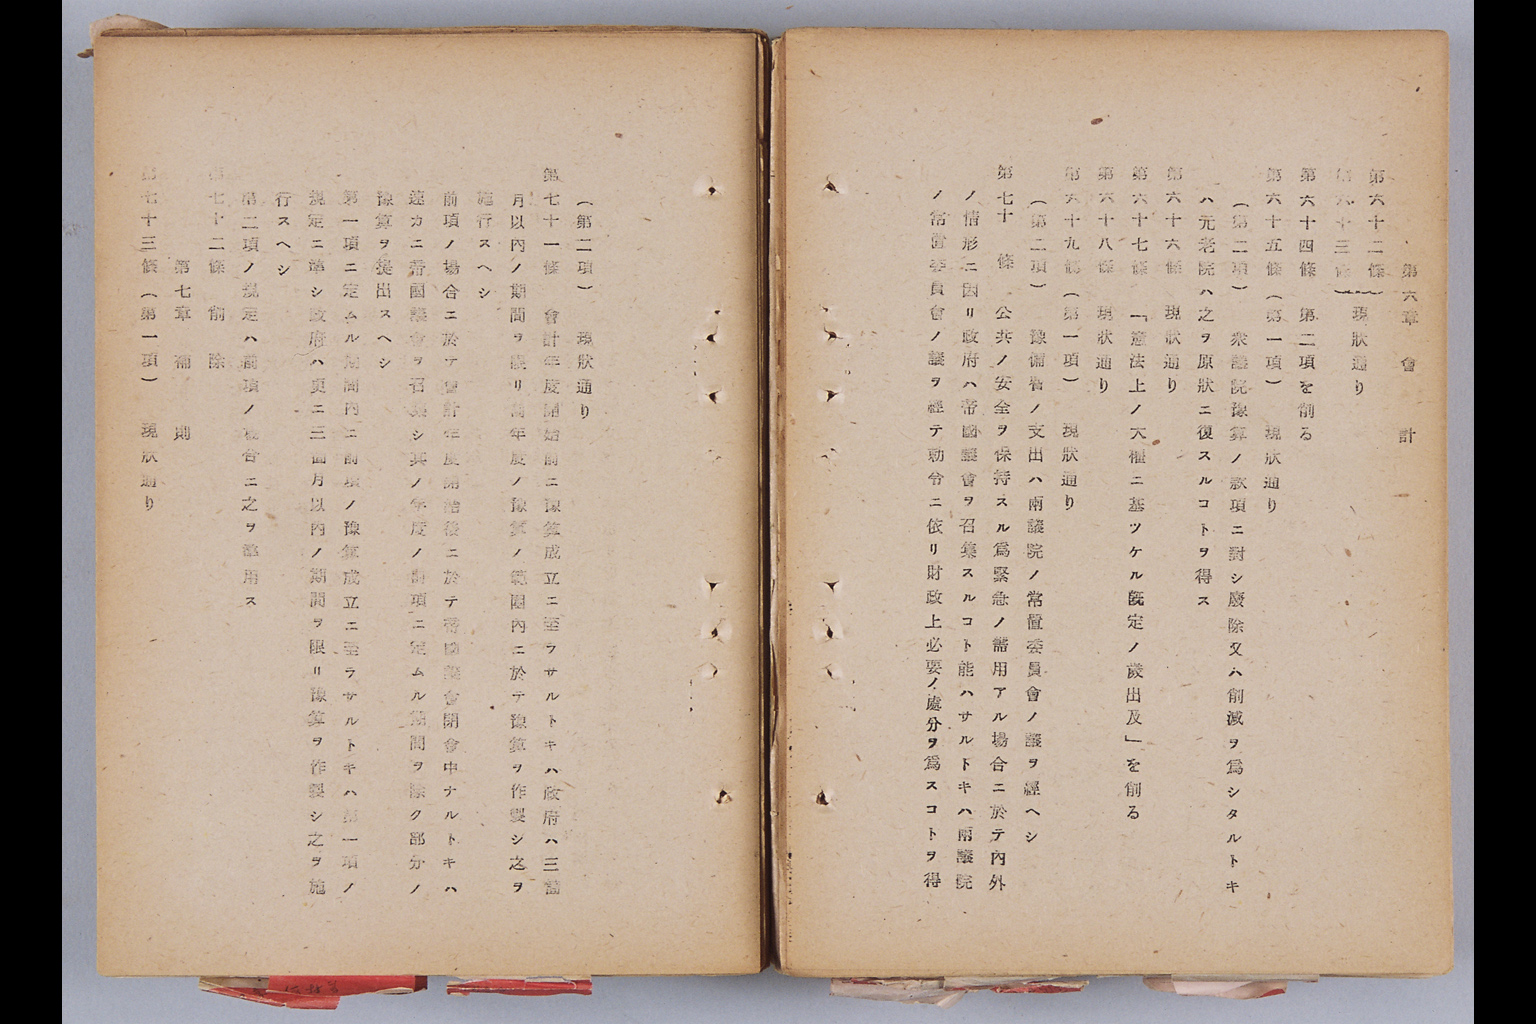 第六章 會計
第六十二條
第六十三條 現狀通り
第六十四條 第二項を削る
第六十五條（第一項） 現狀通り
（第二項） 衆議院豫算ノ款項ニ對シ廢除又ハ削減ヲ爲シタルトキ
ハ元老院ハ之ヲ原狀ニ復スルコトヲ得ス
第六十六條 現狀通り
第六十七條 「憲法上ノ大權ニ基ツケル旣定ノ歲出及」を削る
第六十八條 現狀通り
第六十九條（第一項） 現狀通り
（第二項） 豫備費ノ支出ハ兩議院ノ常置委員會ノ議ヲ經ヘシ
第七十條 公共ノ安全ヲ保持スル爲緊急ノ需用アル場合ニ於テ內外
ノ情形ニ因リ政府ハ帝國議會ヲ召集スルコト能ハサルトキハ兩議院
ノ常置委員會ノ議ヲ經テ勅令ニ依リ財政上必要ノ處分ヲ爲スコトヲ得
（第二項） 現狀通り
第七十一條 會計年度開始前ニ豫算成立ニ至ラサルトキハ政府ハ三箇
月以內ノ期間ヲ限リ前年度ノ豫算ノ範圍內ニ於テ豫算ヲ作製シ之ヲ
施行スヘシ
前項ノ場合ニ於テ會計年度開始後ニ於テ帝國議會閉會中ナルトキハ
速カニ帝國議會ヲ召集シ其ノ年度ノ前項ニ定ムル期間ヲ除ク部分ノ
豫算ヲ提出スヘシ
第一項ニ定ムル期間內ニ前項ノ豫算成立ニ至ラサルトキハ第一項ノ
規定ニ準シ政府ハ更ニ三箇月以內ノ期間ヲ限リ豫算ヲ作製シ之ヲ施
行スヘシ
第二項ノ規定ハ前項ノ場合ニ之ヲ準用ス
第七十二條 削除
第七章 補則
第七十三條（第一項） 現狀通り